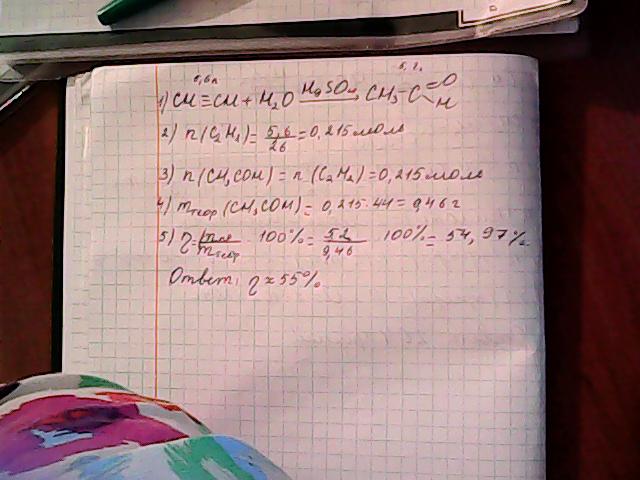 5,6л 5,2г
1) CH≡CH + H₂O HgSO₄ CH₃-C=O H
2) n(C₂H₂) = 5,6/26 = 0,215моль
3) n(CH₃COH) = n(C₂H₂) = 0,215моль
4) mтеор(CH₃COH) = 0,215·44 = 9,46г
5) η = mпр/mтеор · 100% = 52/9,46 · 100% = 54,97%
Ответ: η ≈ 55%